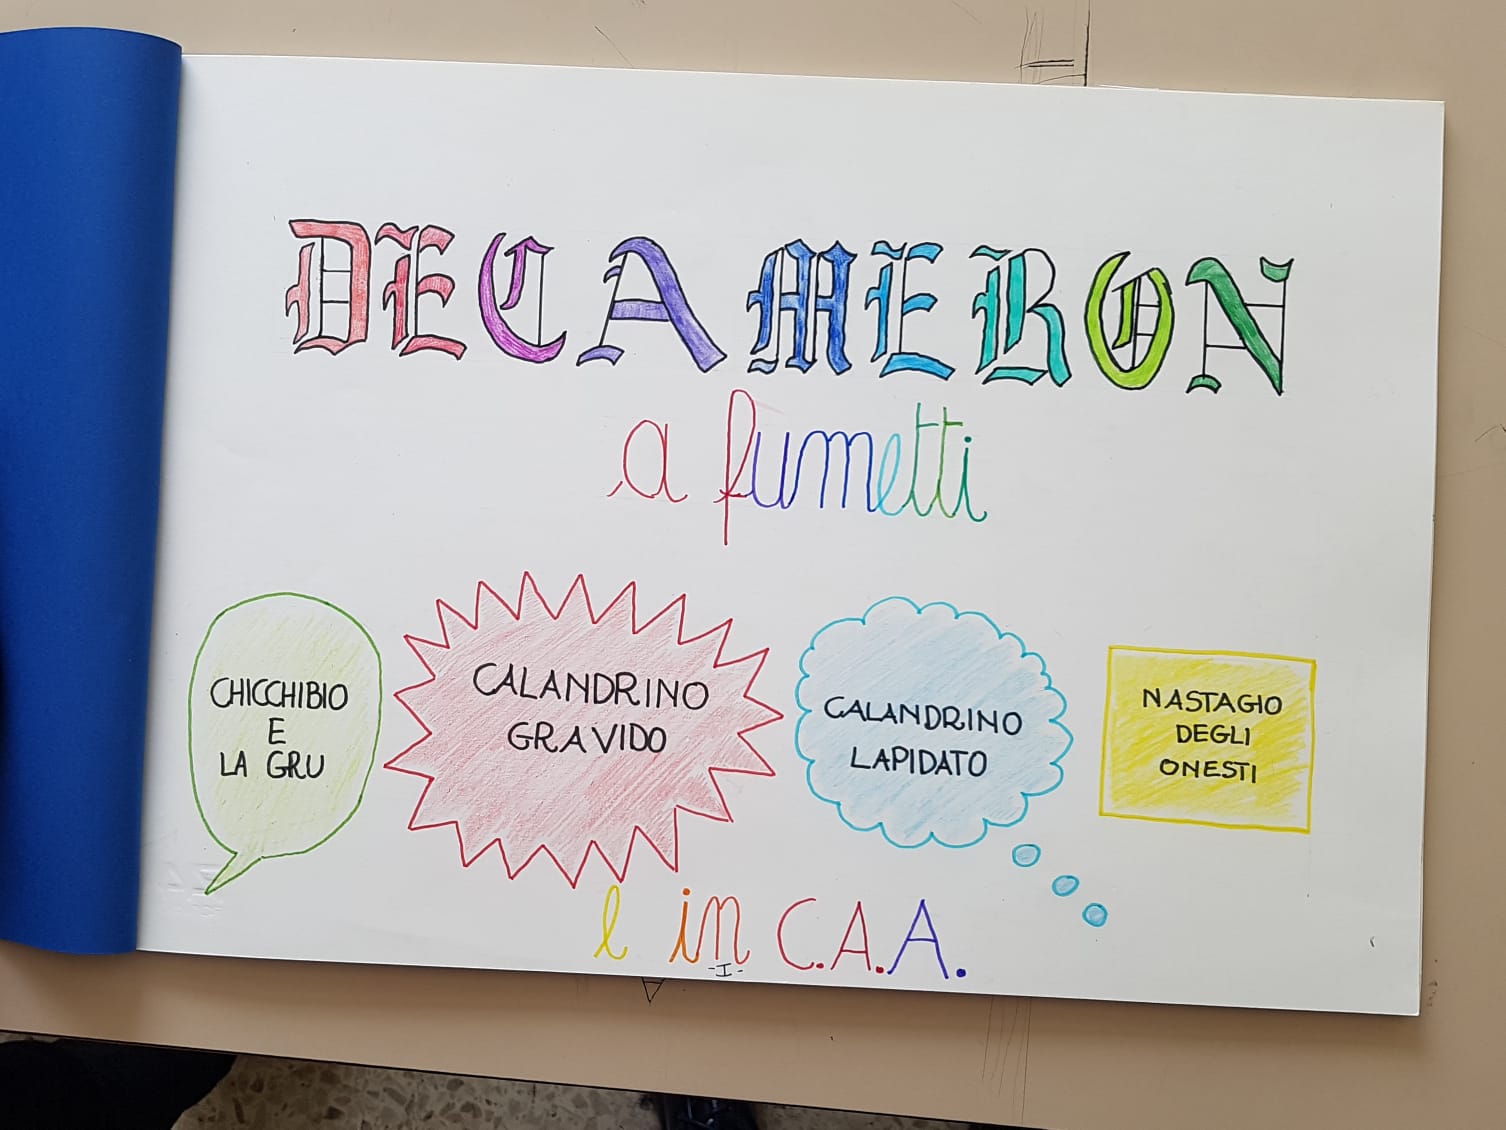 DECAMERON
a fumetti
CHICCHIBIO
E
LA GRU
CALANDRINO
GRAVIDO
CALANDRINO
LAPIDATO
NASTAGIO
DEGLI
ONESTI
e in C.A.A.
-I-